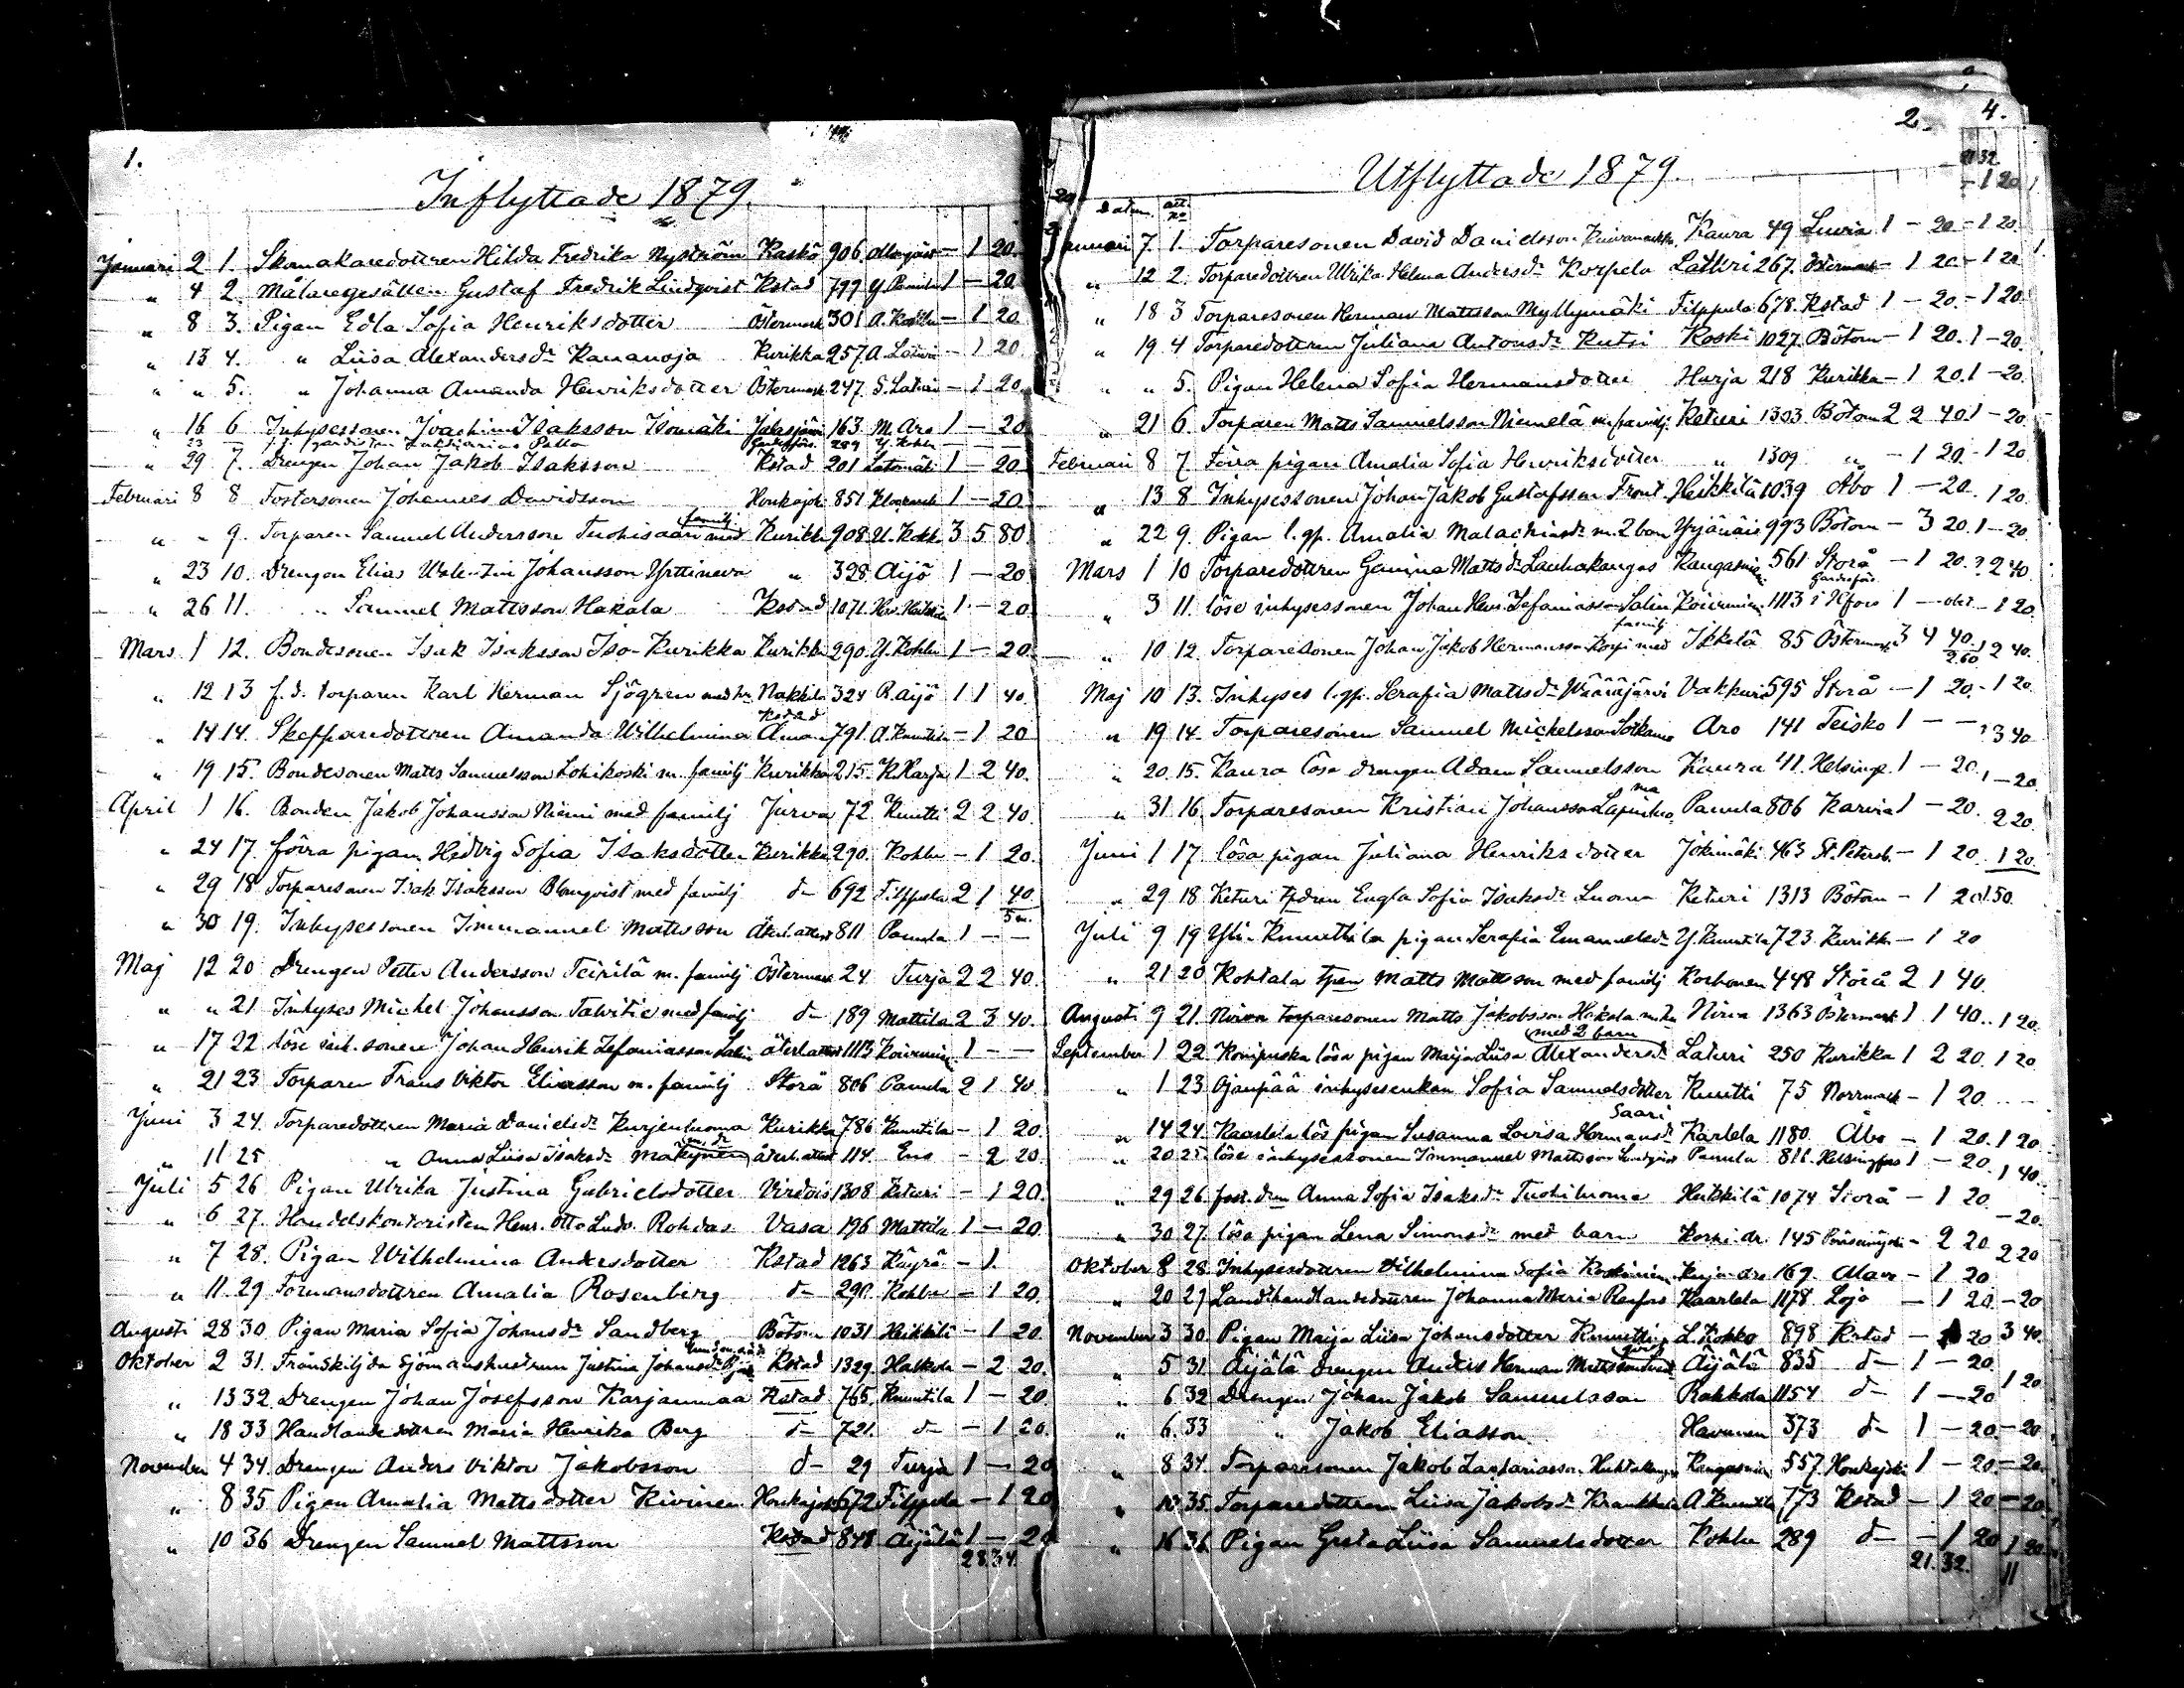 1.
Inflyttade 1879.
Januari 2 1. Skomakaredottren Hilda Fredrika Nyström Kaskö 906 - 1 20.
" 4 2. Målaregesällen Gustaf Fredrik Lindqvist Kstad 799 1 - 20.
" 8 3. Pigan Edla Sofia Henriksdotter Östermark 301 - 1 20
" 13 4. " Liisa Alexandersdr Kananoja Kurikka 257 - 1 20
" " 5. " Johanna Amanda Henriksdotter Östermark 247 - 1 20
" 16 6 Inhysessonen Joachim Isaksson Isomäki Jalasjärvi 163 M. Aro 1 - 20
" 29 7. Drengen Johan Jakob Isaksson Kstad 201 Latomäki 1 - 20
Februari 8 8 Fostersonen Johannes Davidsson Honkajoki 851 1 - 20
" " 9. Torparen Samuel Andersson Tuohisaari med familj Kurikka 908 3 5 80
" 23 10. Drengen Elias Walentin Johansson Yrttineva " 328 Äijö 1 - 20
" 26 11. " Samuel Mattsson Hakala Kstad 1071 1 - 20.
Mars 1 12. Bondesonen Isak Isaksson Iso-Kurikka Kurikka 290 Y. Kohlu 1 - 20
" 12 13 f.d. torparen Karl Herman Sjögren med hu Nakkila 324 R. Äijö 1 1 40.
" 14 14. Skepparedottren Amanda Wilhelmina Åman Kstad 791 - 1 20
" 19 15. Bondesonen Matts Samuelsson Lohikoski m. familj Kurikka 215 K. Harja 1 2 40.
April 1 16. Bonden Jakob Johansson Niemi med familj Jurva 72 Knutti 2 2 40.
" 24 17. pigan Hedvig Sofia Isaksdotter Kurikka 290. Kohlu - 1 20.
" 29 18 Torparesonen Isak Isaksson Blomqvist med familj d- 692 Filppula 2 1 40
" 30 19. Inhysessonen Immanuel Mattsson 811 Panula 1 - -
Maj 12 20 Drengen Petter Andersson Teirilä m. familj Östermark 24 Turja 2 2 40.
" " 21 Inhyses Michel Johansson Talvitie med familj d- 189 Mattila 2 3 40.
" 17 22 löse inh. sonen Johan Henrik Zefaniasson Salin 1113 Koivuniemi 1 - -
" 21 23 Torparen Frans Viktor Eliasson m. familj Storå 806 Panula 2 1 40
Juni 3 24. Torparedottren Maria Danielsdr Kurjenluoma Kurikka 786 Knuutila - 1 20.
" 11 25 " Anna Liisa Isaksdr Mäkynen 114. - 2 20
Juli 5 26 Pigan Ulrika Justina Gabrielsdotter Virdois 1308 Keturi - 1 20.
" 6 27. Handelskontoristen Henr. Otto Ludv. Rohdas Vasa 196 Mattila 1 - 20
" 7 28. Pigan Wilhelmina Andersdotter Kstad 1263 Käyrä - 1.
" 11. 29 Formansdottren Amalia Rosenberg d- 290. Kohlu - 1 20.
Augusti 28 30. Pigan Maria Sofia Johansdr Sandberg Bötom 1031 Heikkilä - 1 20.
Oktober 2 31. Frånskiljda Sjömanshustrun Justina Johansdr Kstad 1329. Halkola - 2 20.
" 13 32. Drengen Johan Josefsson Karjanmaa Kstad 765. Knuutila 1 - 20.
" 18 33 Handlandedottren Maria Henrika Berg d- 721. d- - 1 20.
November 4 34. Drengen Anders Viktor Jakobsson d- 29 Turja 1 - 20
" 8 35 Pigan Amalia Mattsdotter Kivinen Honkajoki 672 Filppula - 1 20
" 10 36 Drengen Samuel Mattsson Kstad 848 Äijälä 1 - 20
28.34.
2. 4.
Utflyttade 1879.
Datum. att. no
Januari 7 1. Torparesonen David Danielsson Kaura 49 Luvia 1 - 20 - 1 20.
" 12 2. Torparedottren Ulrika Helena Andersdr Korpela Lathri 267. Östermark - 1 20 - 1 20
" 18 3 Torparesonen Herman Mattsson Myllymäki Filppula 678. Kstad 1 - 20. - 1 20.
" 19 4 Torparedottren Juliana Antonsdr Kutri Koski 1027. Bötom - 1 20. 1 - 20.
" " 5. Pigan Helena Sofia Hermansdotter Harja 218 Kurikka - 1 20. 1 - 20.
" 21 6 Torparen Matts Samuelsson Niemelä m. familj. Keturi 1303 Bötom 2 2 40. 1 - 20.
Februari 8 7 pigan Amalia Sofia Henriksdotter " 1309 " - 1 20. - 1 20
" 13 8 Inhysessonen Johan Jakob Gustafsson Front Heikkilä 1039 Åbo 1 - 20. 1 20.
" 22 9. Pigan l. gp. Amalia Malachiasdr m. 2 barn Yrjänäis 993 Bötom - 3 20. 1 - 20.
Mars 1 10 Torparedottren Gunina Mattsdr Lauhakangas Kangasniemi 561 Storå - 1 20. 2 40.
" 3 11. löse inhysessonen Johan Henr. Zefaniasson Salin Koivuniemi 1113 i Hfors 1 - - 1 20.
" 10 12. Torparesonen Johan Jakob Hermansson Korpi med familj Ikkelä 85 Östermark 3 4 40. 2 40.
Maj 10 13. Inhyses l. gp. Serafia Mattsdr Wääräjärvi Vakkuri 595 Storå - 1 20. - 1 20.
" 19 14. Torparesonen Samuel Michelsson Sotkamo Aro 141 Teisko 1 - - 3 40
" 20. 15. Kaura löse drengen Adam Samuelsson Kaura 41. Helsingf. 1 - 20. 1 - 20.
" 31 16. Torparesonen Kristian Johansson Panula 806 Karvia 1 - 20. 2 20.
Juni 1 17. lösa pigan Juliana Henriksdotter Jokimäki 463 St. Petersb. - 1 20. 1 20.
" 29 18 Keturi tpdren Engla Sofia Isaksdr Luoma Keturi 1313 Bötom - 1 20 1.50.
Juli 9 19 Yli-Knuuttila pigan Serafia Emanuelsdr Y. Knuutila 723. Kurikka - 1 20
" 21 20 Kohtala tpen Matts Mattsson med familj Korhonen 448 Storå 2 1 40.
Augusti 9 21. Nirva torparesonen Matts Jakobsson Hakola m. hu Nirva 1363 Östermark 1 1 40. 1 20.
September 1 22. Kompuska lösa pigan Maija Liisa Alexandersdr med 2 barn Laturi 250 Kurikka 1 2 20. 1 20
" 1 23 Ojanpää inhysesenkan Sofia Samuelsdotter Knutti 75 Norrmark - 1 20 - -
" 14 24. Kaarlela lös pigan Susanna Lovisa Hermansdr Saari Karlela 1180. Åbo - 1 20. 1 20.
" 20 25. löse inhysessonen Immanuel Mattsson Lindqvist Panula 811. Helsingfors 1 - 20. 1 40.
" 29 26 Anna Sofia Isaksdr Tuohiluoma Heikkilä 1074 Storå - 1 20
- 20.
" 30 27. lösa pigan Lena Simonsdr med barn 145 - 2 20 2 20
Oktober 8 28. Inhysesdottren Vilhelmina Sofia Koskinen 169. Alavo - 1 20
" 20 29 Landthandlandedottren Johanna Maria Renfors Kaarlela 1178 Lojo - 1 20 - 20
November 3 30. Pigan Maija Liisa Johansdotter Knuutti L. Kokko 898 Kstad - 20 3 40.
" 5 31. Äijälä drengen Anders Herman Mattsson Äijälä 835 d- 1 - 20.
" 6 32 Drengen Johan Jakob Samuelsson Rahkola 1154 d- 1 - 20 1 20
" 6. 33 " Jakob Eliasson Havunen 373 d- 1 - 20. - 20
" 8 34. Torparesonen Jakob Zachariasson Huhtakangas Kangasniemi 557. Honkajoki 1 - 20. - 20.
" 10 35. Torparedottren Liisa Jakobsdr Krankkala A. Knuutila 773 Kstad - 1 20 - 20
" 16 36 Pigan Greta Liisa Samuelsdotter Kohlu 289 d- - 1 20 1 20.
21.32. 11